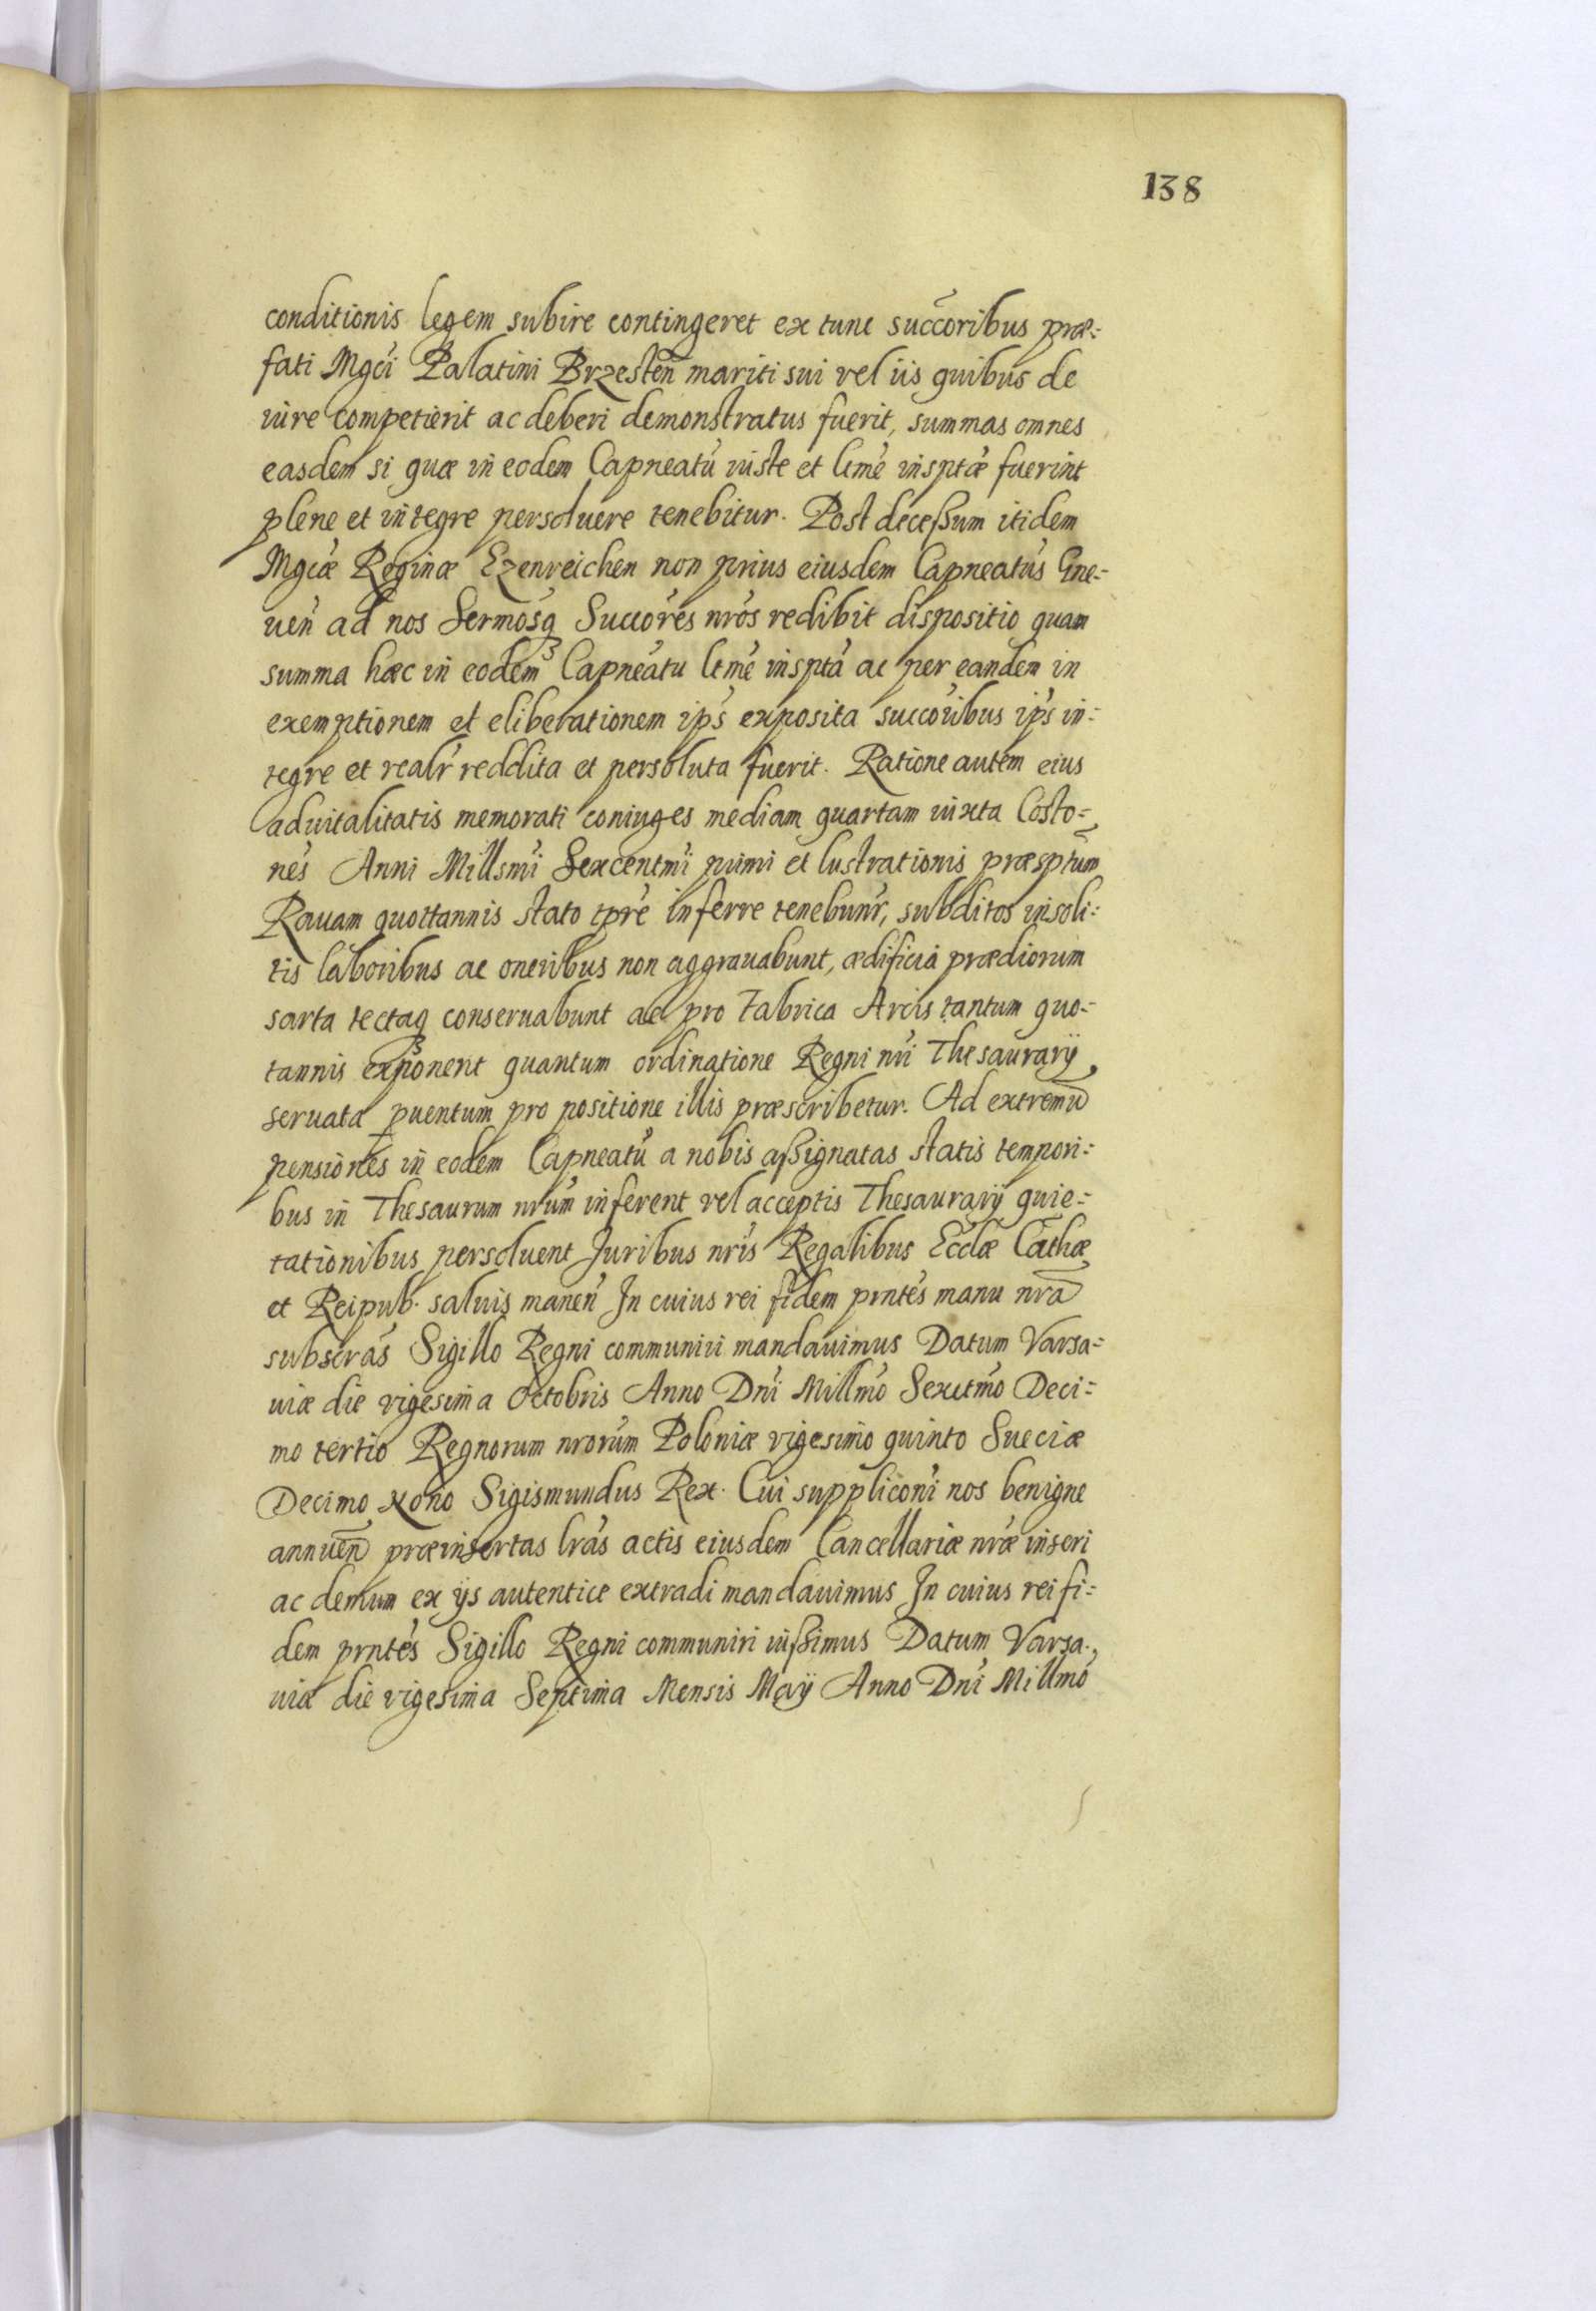 138
conditionis legem subire contingeret ex tunc succoribus præ=
fati Mgci Palatini Brzesten mariti sui vel iis quibus de
iure competierit ac deberi demonstratus fuerit, summas omnes
easdem si quæ in eodem Capneatu iuste et ltme insptæ fuerint
plene et integre persoluere tenebitur. Post deceßum itidem
Mgcæ Reginæ Ezenreichen non prius eiusdem Capneatus Gne=
uen ad nos Sermosq3 Succores nros redibit dispositio quam
summa hæc in eodem Capneatu ltme inspta ac per eandem in
exemptionem et eliberationem ips exposita succoribus ips in=
tegre et realr reddita et persoluta fuerit. Ratione autem eius
aduitalitatis memorati coniuges mediam quartam iuxta Costo=
nes Anni Millsmi Sexcentmi primi et lustrationis præsptum
Rauam quottannis stato tpre inferre tenebunr, subditos insoli=
tis laboribus ac oneribus non aggrauabunt, ædificia prædiorum
sarta tectaq3 conseruabunt ac pro Fabrica Arcis tantum quo=
tannis exponent quantum ordinatione Regni nri Thesaurarÿ
seruata puentum pro positione illis præscribetur. Ad extremu
pensiones in eodem Capneatu a nobis aßignatas statis tempori=
bus in Thesaurum nrum inferent vel acceptis Thesaurarÿ quie=
tationibus persoluent Juribus nris Regalibus Ecclæ Cathæ
et Reipub. saluis manen In cuius rei fidem prntes manu nra
subscras Sigillo Regni communiri mandauimus Datum Varsa=
uiæ die vigesima Octobris Anno Dni Millmo Sexctmo Deci=
mo tertio Regnorum nrorum Poloniæ vigesimo quinto Sueciæ
Decimo Nono Sigismundus Rex. Cui suppliconi nos benigne
annuen præinsertas lras actis eiusdem Cancellariæ nræ inseri
ac demum ex ijs autentice extradi mandauimus In cuius rei fi=
dem prntes Sigillo Regni communiri iußimus Datum Varsa=
uiæ die vigesima Septima Mensis Maÿ Anno Dni Millmo